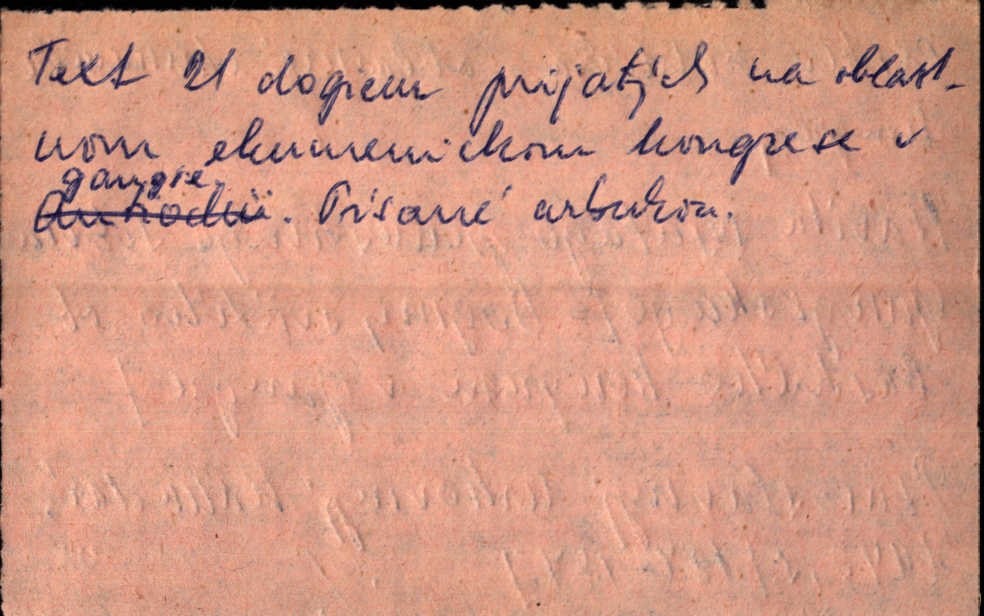 Text 21 dogiem prijatých na oblast-
nom ekumenickom kongrese v
gangre
Antiochii. Písané azbukou.